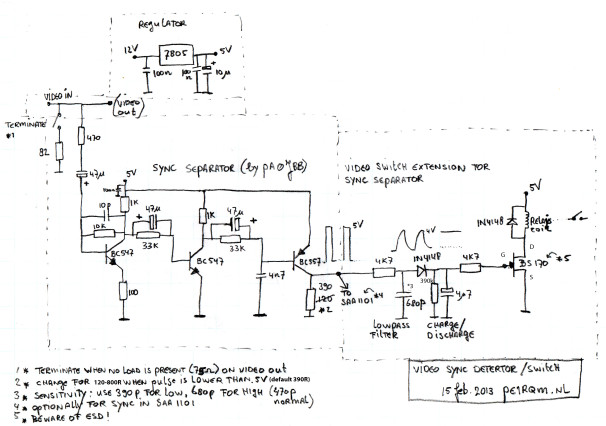 REGULATOR
12V
7805
5V
100n
100n
10µ
+
VIDEO IN
(VIDEO out)
TERMINATE *1
470
82
47µ
+
SYNC SEPARATOR (by PA0 BB)
5V
100n
10p
10K
1K
47µ
+
33K
BC547
100
1K
47µ
+
33K
BC547
4n7
BC557
5V
390
120
*2
TO SAA1101 *4
VIDEO SWITCH EXTENSION FOR SYNC SEPARATOR
4V
4K7
1N4148
*3
680p
390K
4µ7
4K7
LOWPASS FILTER
CHARGE/DISCHARGE
5V
1N4148
Relais coil
G
D
S
BS170 *5
1 * TERMINATE WHEN NO LOAD IS PRESENT (75Ω) ON VIDEO OUT
2 * CHANGE FOR 120-800R WHEN PULSE IS LOWER THAN .5V (default 390R)
3 * SENSITIVITY: USE 390p FOR LOW, 680p FOR HIGH (470p NORMAL)
4 * OPTIONALLY FOR SYNC IN SAA1101
5 * BEWARE OF ESD!
VIDEO SYNC DETECTOR/SWITCH
15 feb. 2013 PE1RQM.NL